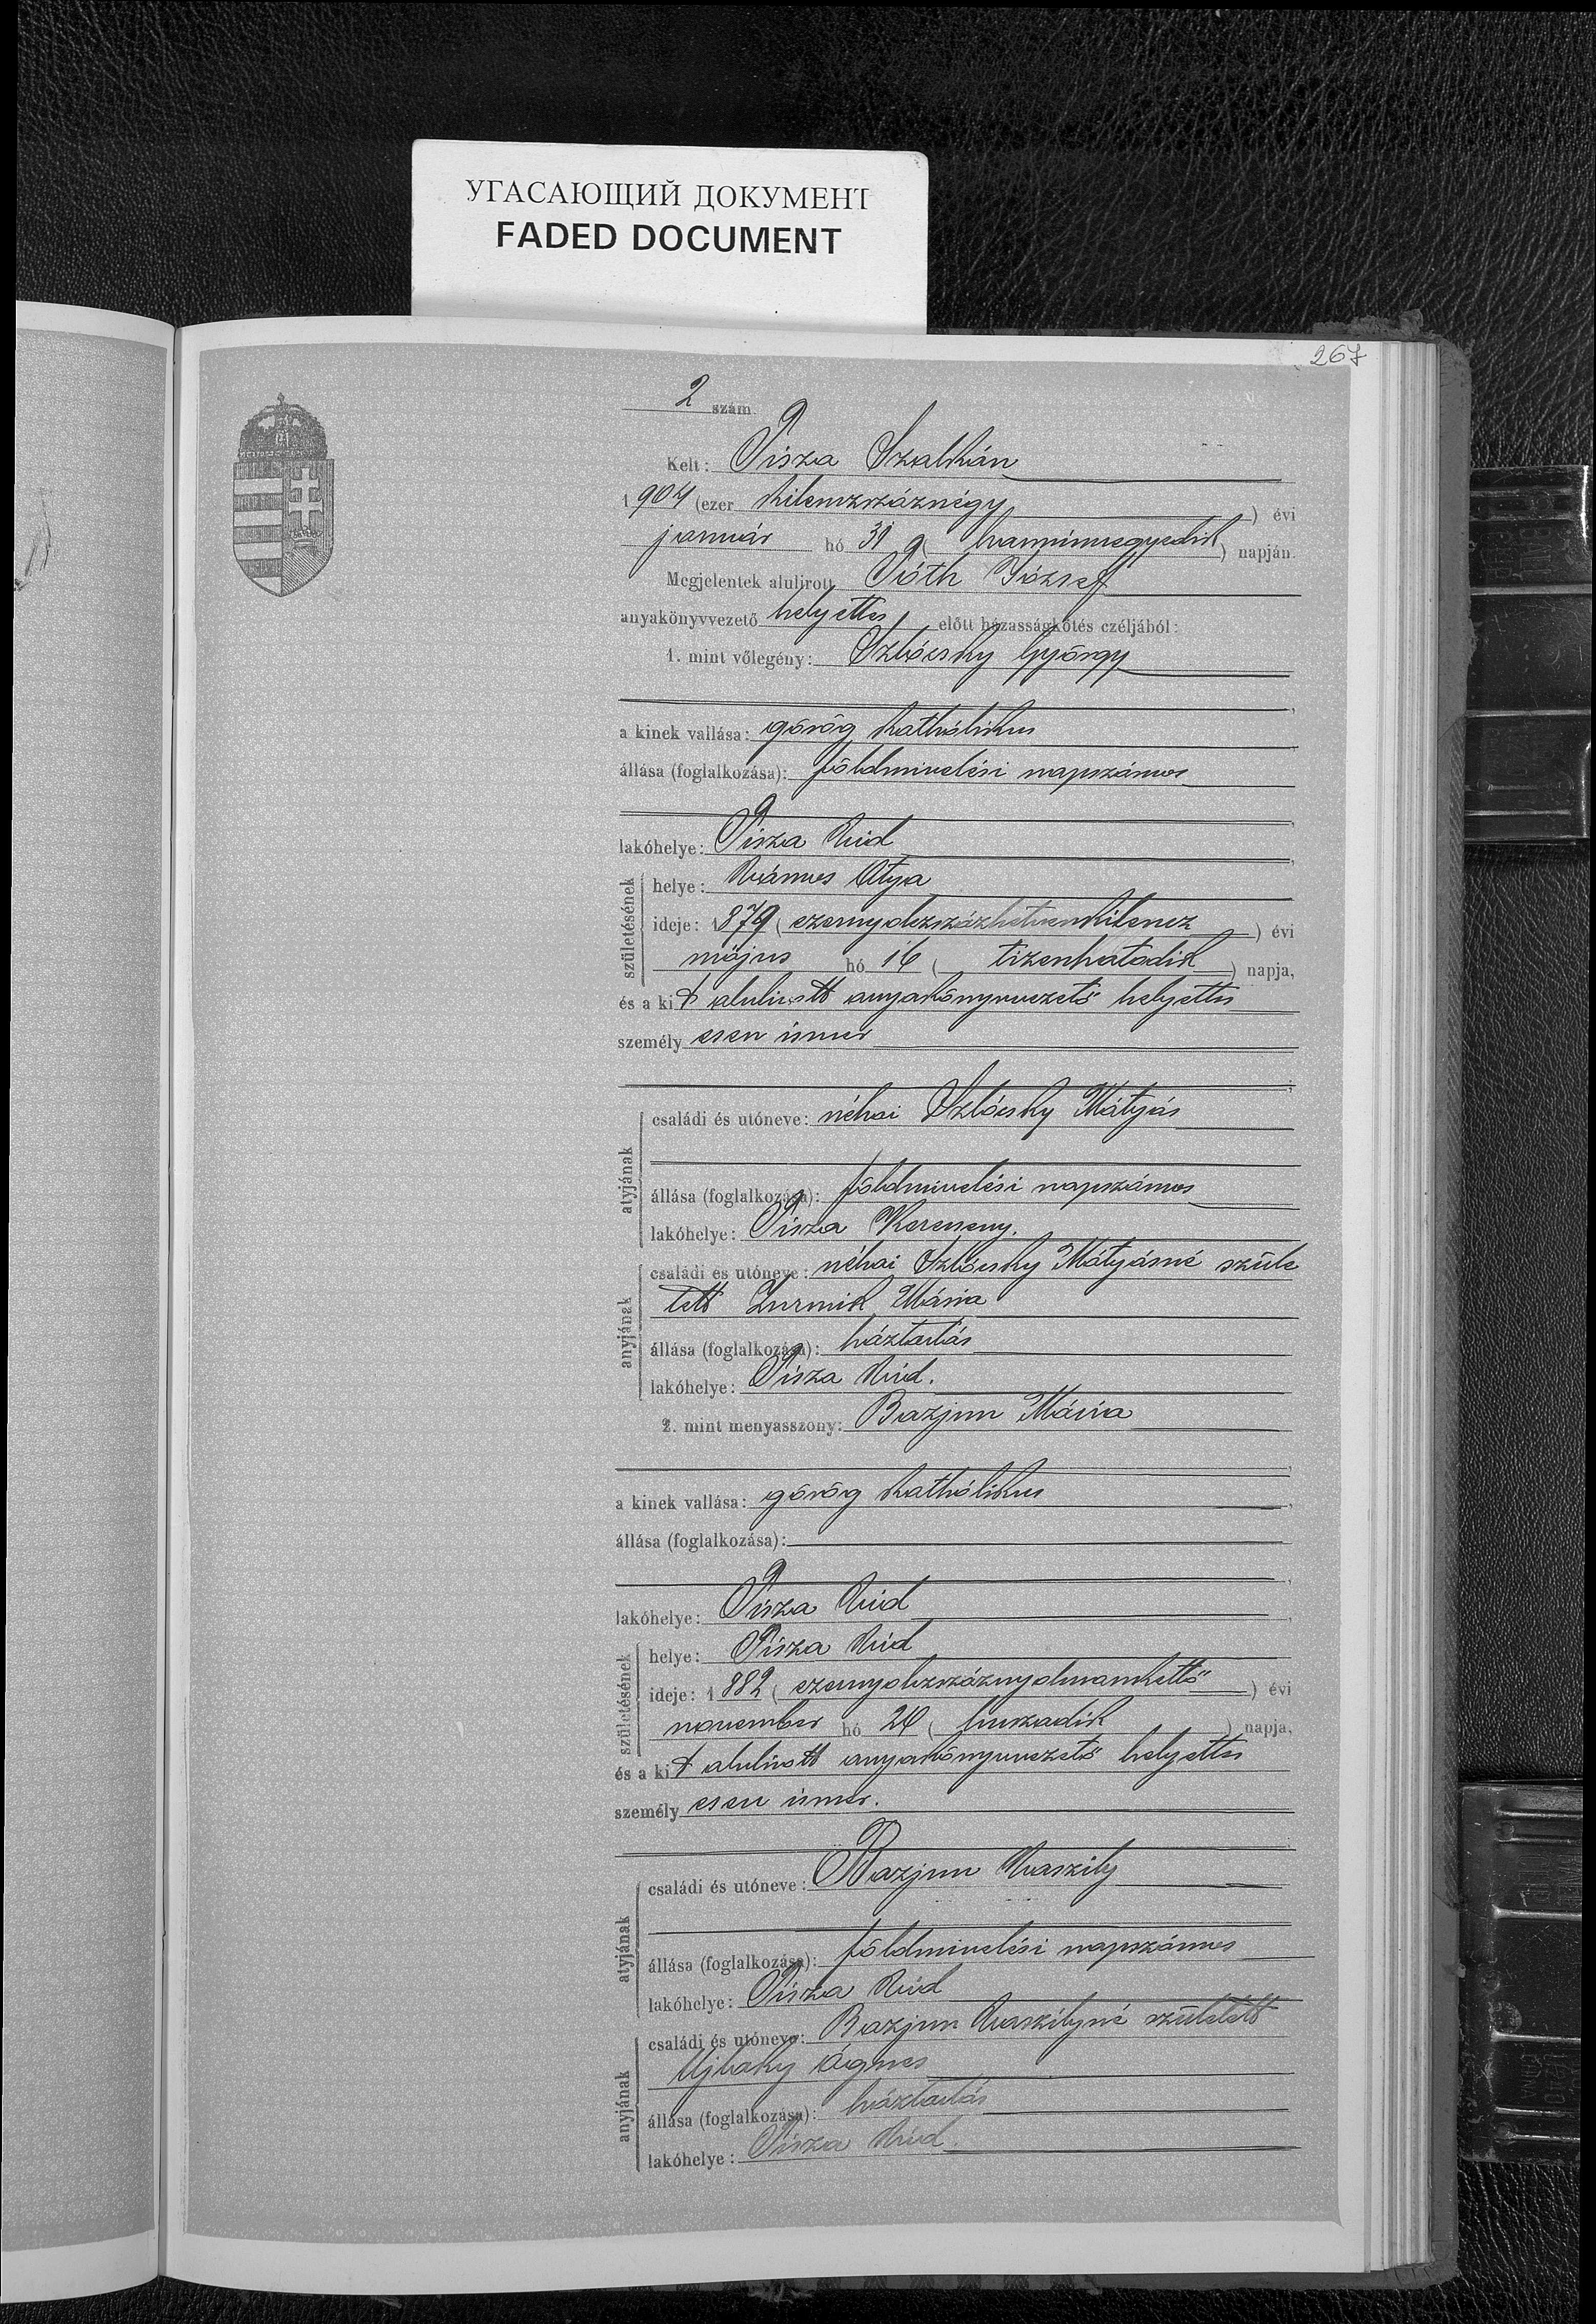 УГАСАЮЩИЙ ДОКУМЕНТ
FADED DOCUMENT
267
2 szám.
Kelt: Tisza Szalkán
1904 (ezer kilenczszáznégy) évi
január hó 31 (harminczegyedik) napján.
Megjelentek alulirott Tóth József
anyakönyvvezető helyettes előtt házasságkötés czéljából:
1. mint vőlegény: Szlócsky György
a kinek vallása: görög katholikus
állása (foglalkozása): földmivelési napszámos
lakóhelye: Tisza Vid
születésének
helye: Vámos Atya
ideje: 1879 (ezernyolczszázhetvenkilencz) évi
május hó 16 (tizenhatodik) napja,
és a kit alulirott anyakönyvvezető helyettes
személyesen ismer
atyjának
családi és utóneve: néhai Szlócsky Mátyás
állása (foglalkozása): földmivelési napszámos
lakóhelye: Tisza Kerecseny.
anyjának
családi és utóneve: néhai Szlócsky Mátyásné szüle
tett Mária
állása (foglalkozása): háztartás
lakóhelye: Tisza Vid.
2. mint menyasszony: Bazjun Mária
a kinek vallása: görög katholikus
állása (foglalkozása):
lakóhelye: Tisza Vid
születésének
helye: Tisza Vid
ideje: 1882 (ezernyolczszáznyolczvankettő) évi
november hó 20 (huszadik) napja,
és a kit alulirott anyakönyvvezető helyettes
személyesen ismer.
atyjának
családi és utóneve: Bazjun Vaszily
állása (foglalkozása): földmivelési napszámos
lakóhelye: Tisza Vid
anyjának
családi és utóneve: Bazjun Vaszilyné született
Ujlaky Ágnes
állása (foglalkozása): háztartás
lakóhelye: Tisza Vid.